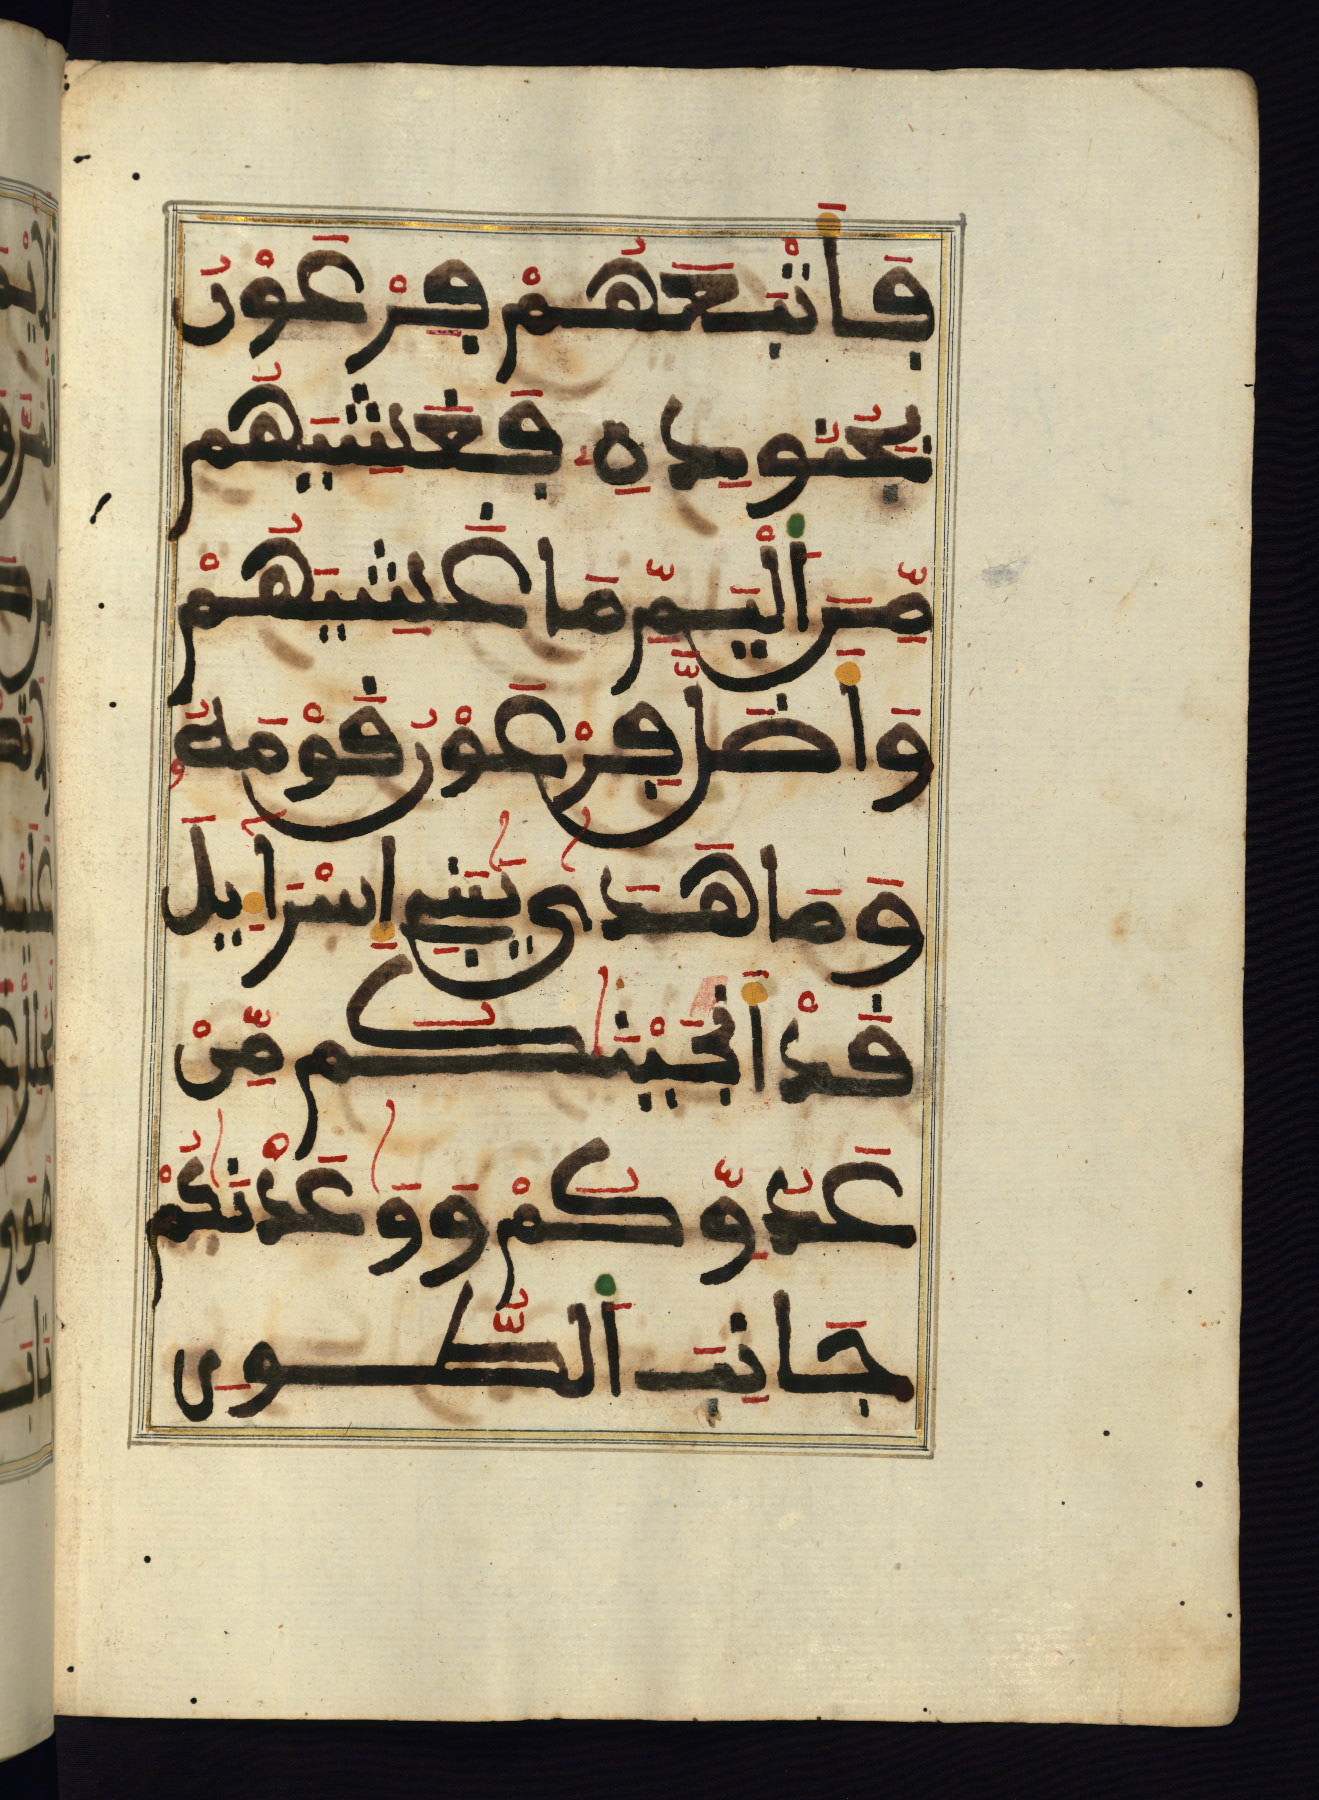 فَأَتْبَعَهُمْ فِرْعَوْنُ
بِجُنُودِهِ فَغَشِيَهُم
مِّنَ اَلْيَمِّ مَا غَشِيَهُمْ
وَأَضَلَّ فِرْعَوْنُ قَوْمَهُ
وَمَا هَدَىٰ يَٰبَنِي إِسْرَآءِيلَ
قَدْ أَنجَيْنَٰكُم مِّنْ
عَدُوِّكُمْ وَوَٰعَدْنَٰكُمْ
جَانِبَ اَلطُّورِ